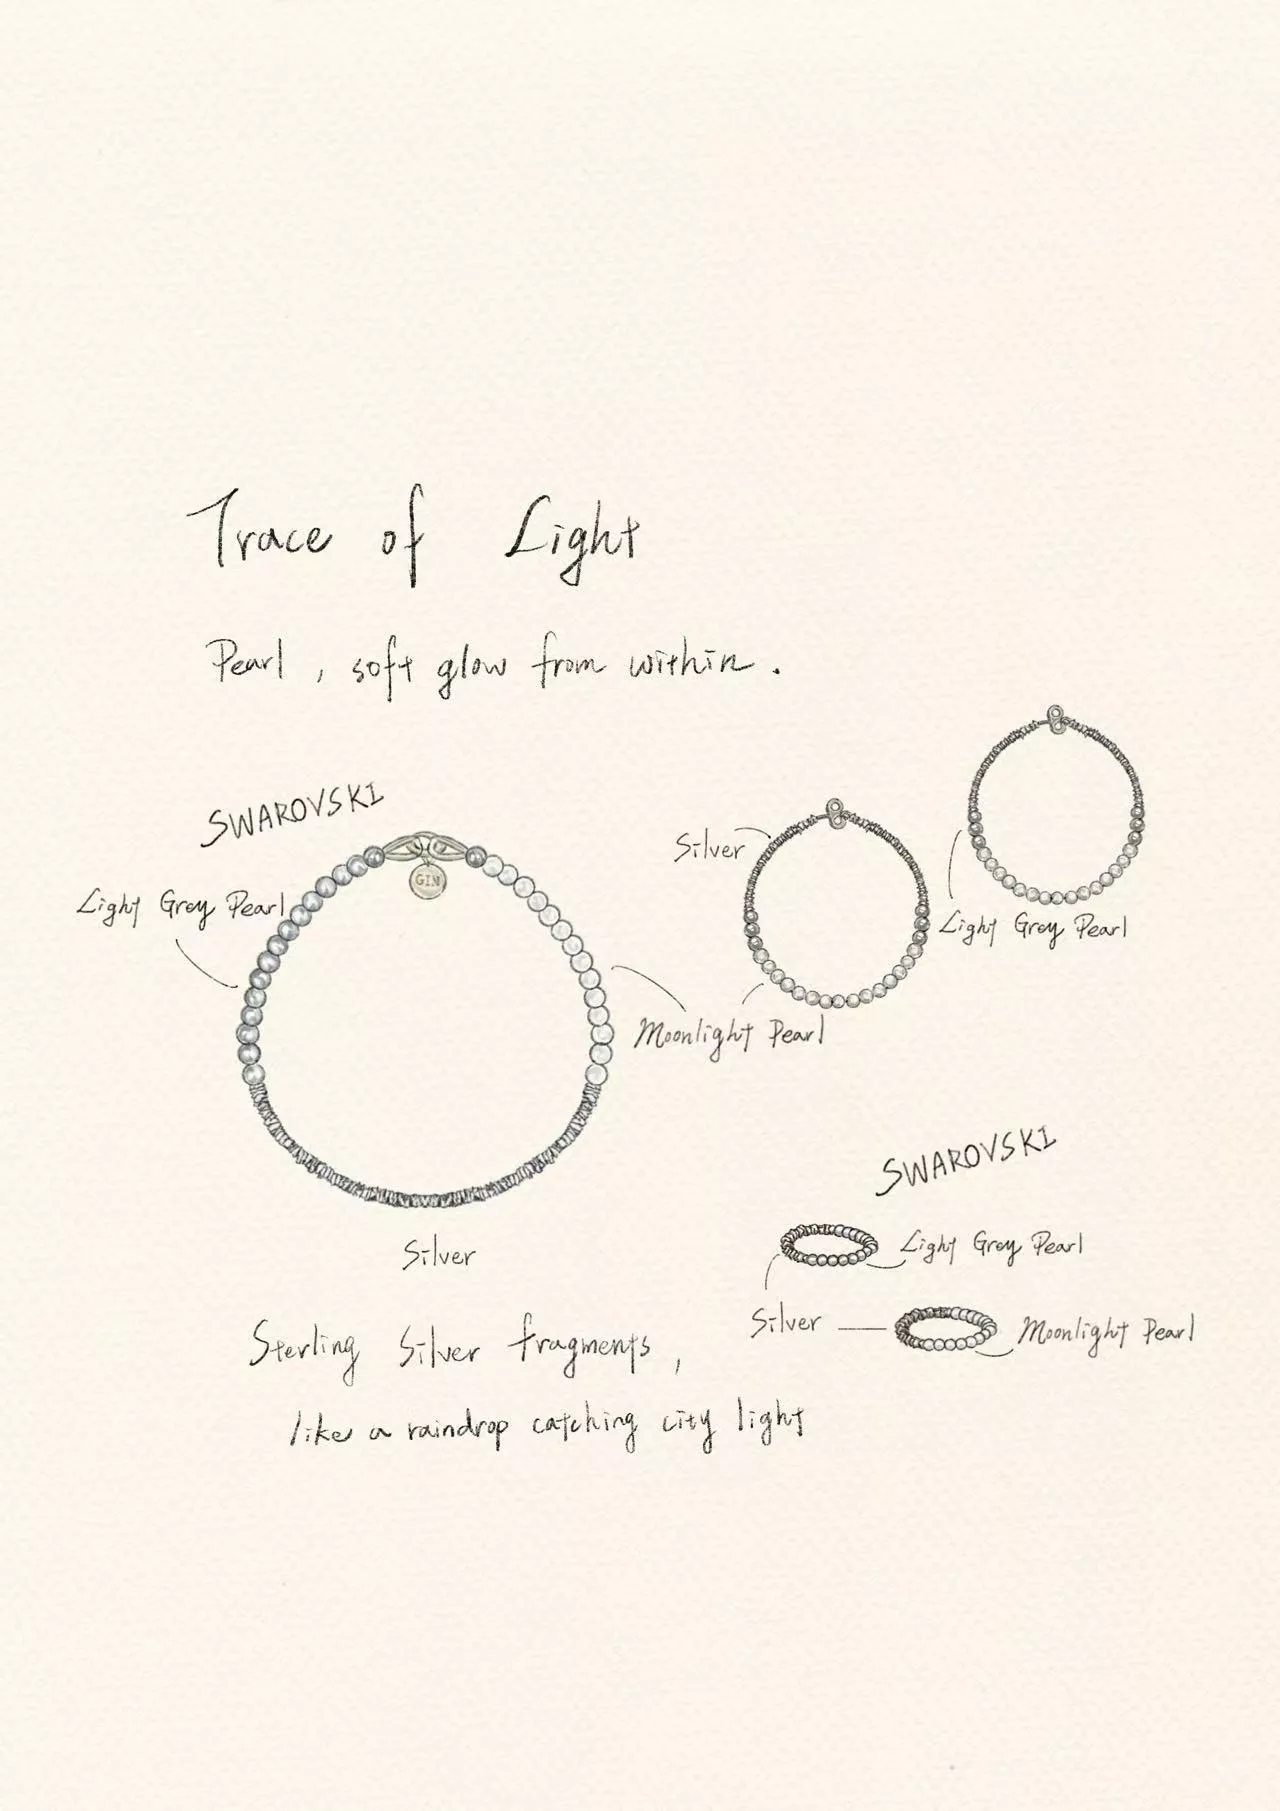 Trace of Light
Pearl , soft glow from within .
SWAROVSKI
Light Grey Pearl
GIN
Silver
Light Grey Pearl
Moonlight Pearl
SWAROVSKI
Light Grey Pearl
Silver
Silver
Moonlight Pearl
Sterling Silver fragments ,
like a raindrop catching city light